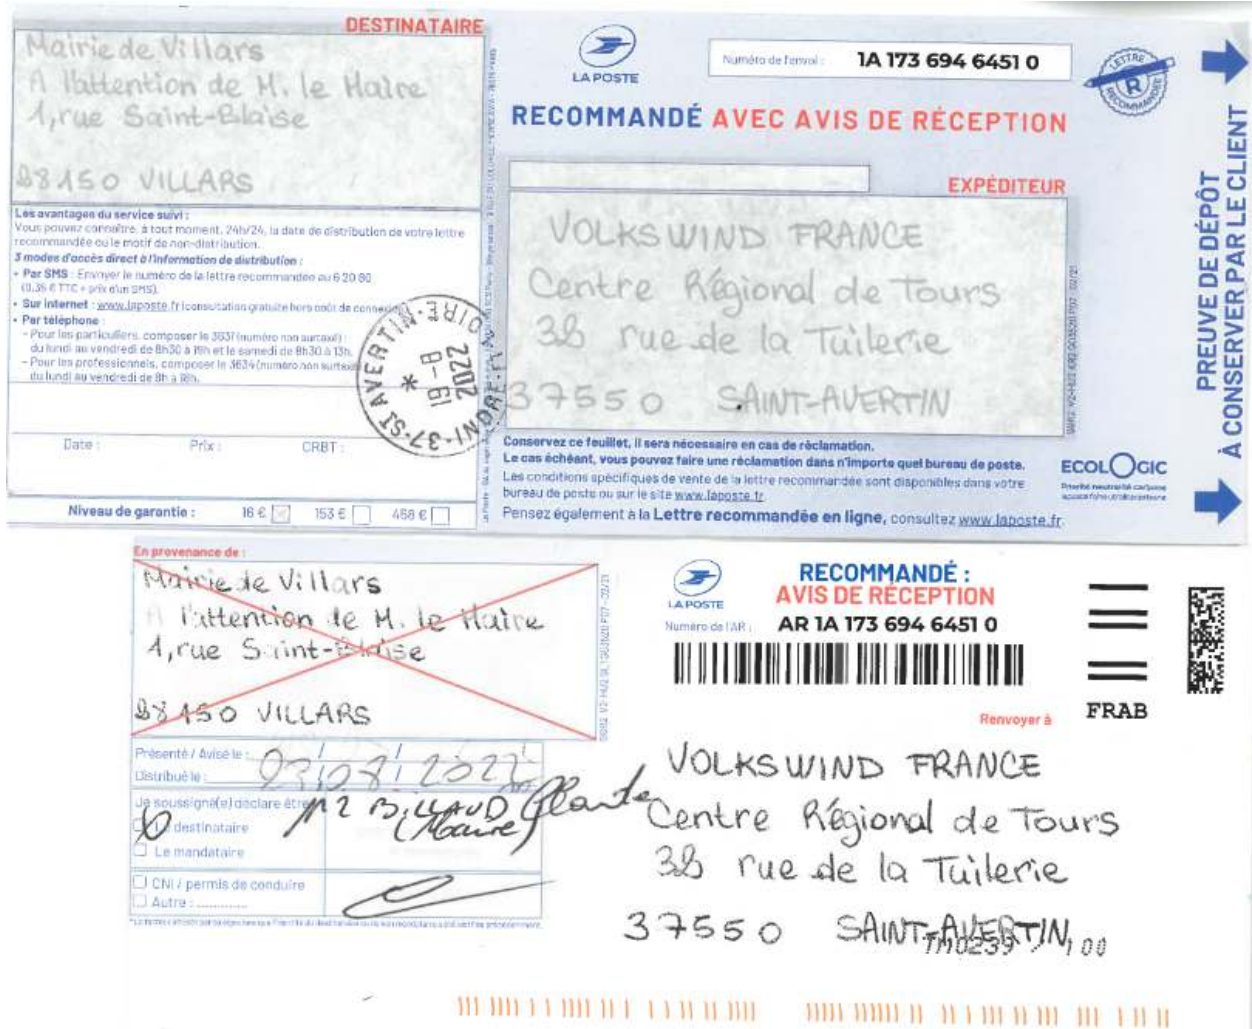 DESTINATAIRE
Mairie de Villars
A l'attention de M. le Maire
1, rue Saint-Blaise
28150 VILLARS
Les avantages du service suivi :
Vous pouvez connaître, à tout moment, 24h/24, la date de distribution de votre lettre
recommandée ou le motif de non-distribution.
3 modes d'accès direct à l'information de distribution :
• Par SMS : Envoyer le numéro de la lettre recommandée au 6 20 80
(0,35 € TTC + prix d'un SMS).
• Sur internet : www.laposte.fr (consultation gratuite hors coût de connexion).
• Par téléphone :
– Pour les particuliers, composer le 3631 (numéro non surtaxé) :
du lundi au vendredi de 8h30 à 19h et le samedi de 8h30 à 13h.
– Pour les professionnels, composer le 3634 (numéro non surtaxé)
du lundi au vendredi de 8h à 18h.
Date : Prix : CRBT :
Niveau de garantie : 16 € 153 € 458 €
37-ST AVERTIN
INDRE-ET-LOIRE
19-8
2022
*
LA POSTE
Numéro de l'envoi : 1A 173 694 6451 0
LETTRE
R
RECOMMANDÉE
RECOMMANDÉ AVEC AVIS DE RÉCEPTION
EXPÉDITEUR
VOLKSWIND FRANCE
Centre Régional de Tours
38 rue de la Tuilerie
37550 SAINT-AVERTIN
Conservez ce feuillet, il sera nécessaire en cas de réclamation.
Le cas échéant, vous pouvez faire une réclamation dans n'importe quel bureau de poste.
Les conditions spécifiques de vente de la lettre recommandée sont disponibles dans votre
bureau de poste ou sur le site www.laposte.fr
Pensez également à la Lettre recommandée en ligne, consultez www.laposte.fr
ECOLOGIC
PREUVE DE DÉPÔT
À CONSERVER PAR LE CLIENT
En provenance de :
Mairie de Villars
A l'attention de M. le Maire
1, rue Saint-Blaise
28150 VILLARS
Présenté / Avisé le :
Distribué le : 23/08/2022
Je soussigné(e) déclare être
Le destinataire
BILLAUD
(Maire)
Le mandataire
CNI / permis de conduire
Autre :
LA POSTE
RECOMMANDÉ :
AVIS DE RÉCEPTION
Numéro de l'AR : AR 1A 173 694 6451 0
FRAB
Renvoyer à
VOLKSWIND FRANCE
Centre Régional de Tours
38 rue de la Tuilerie
37550 SAINT-AVERTIN